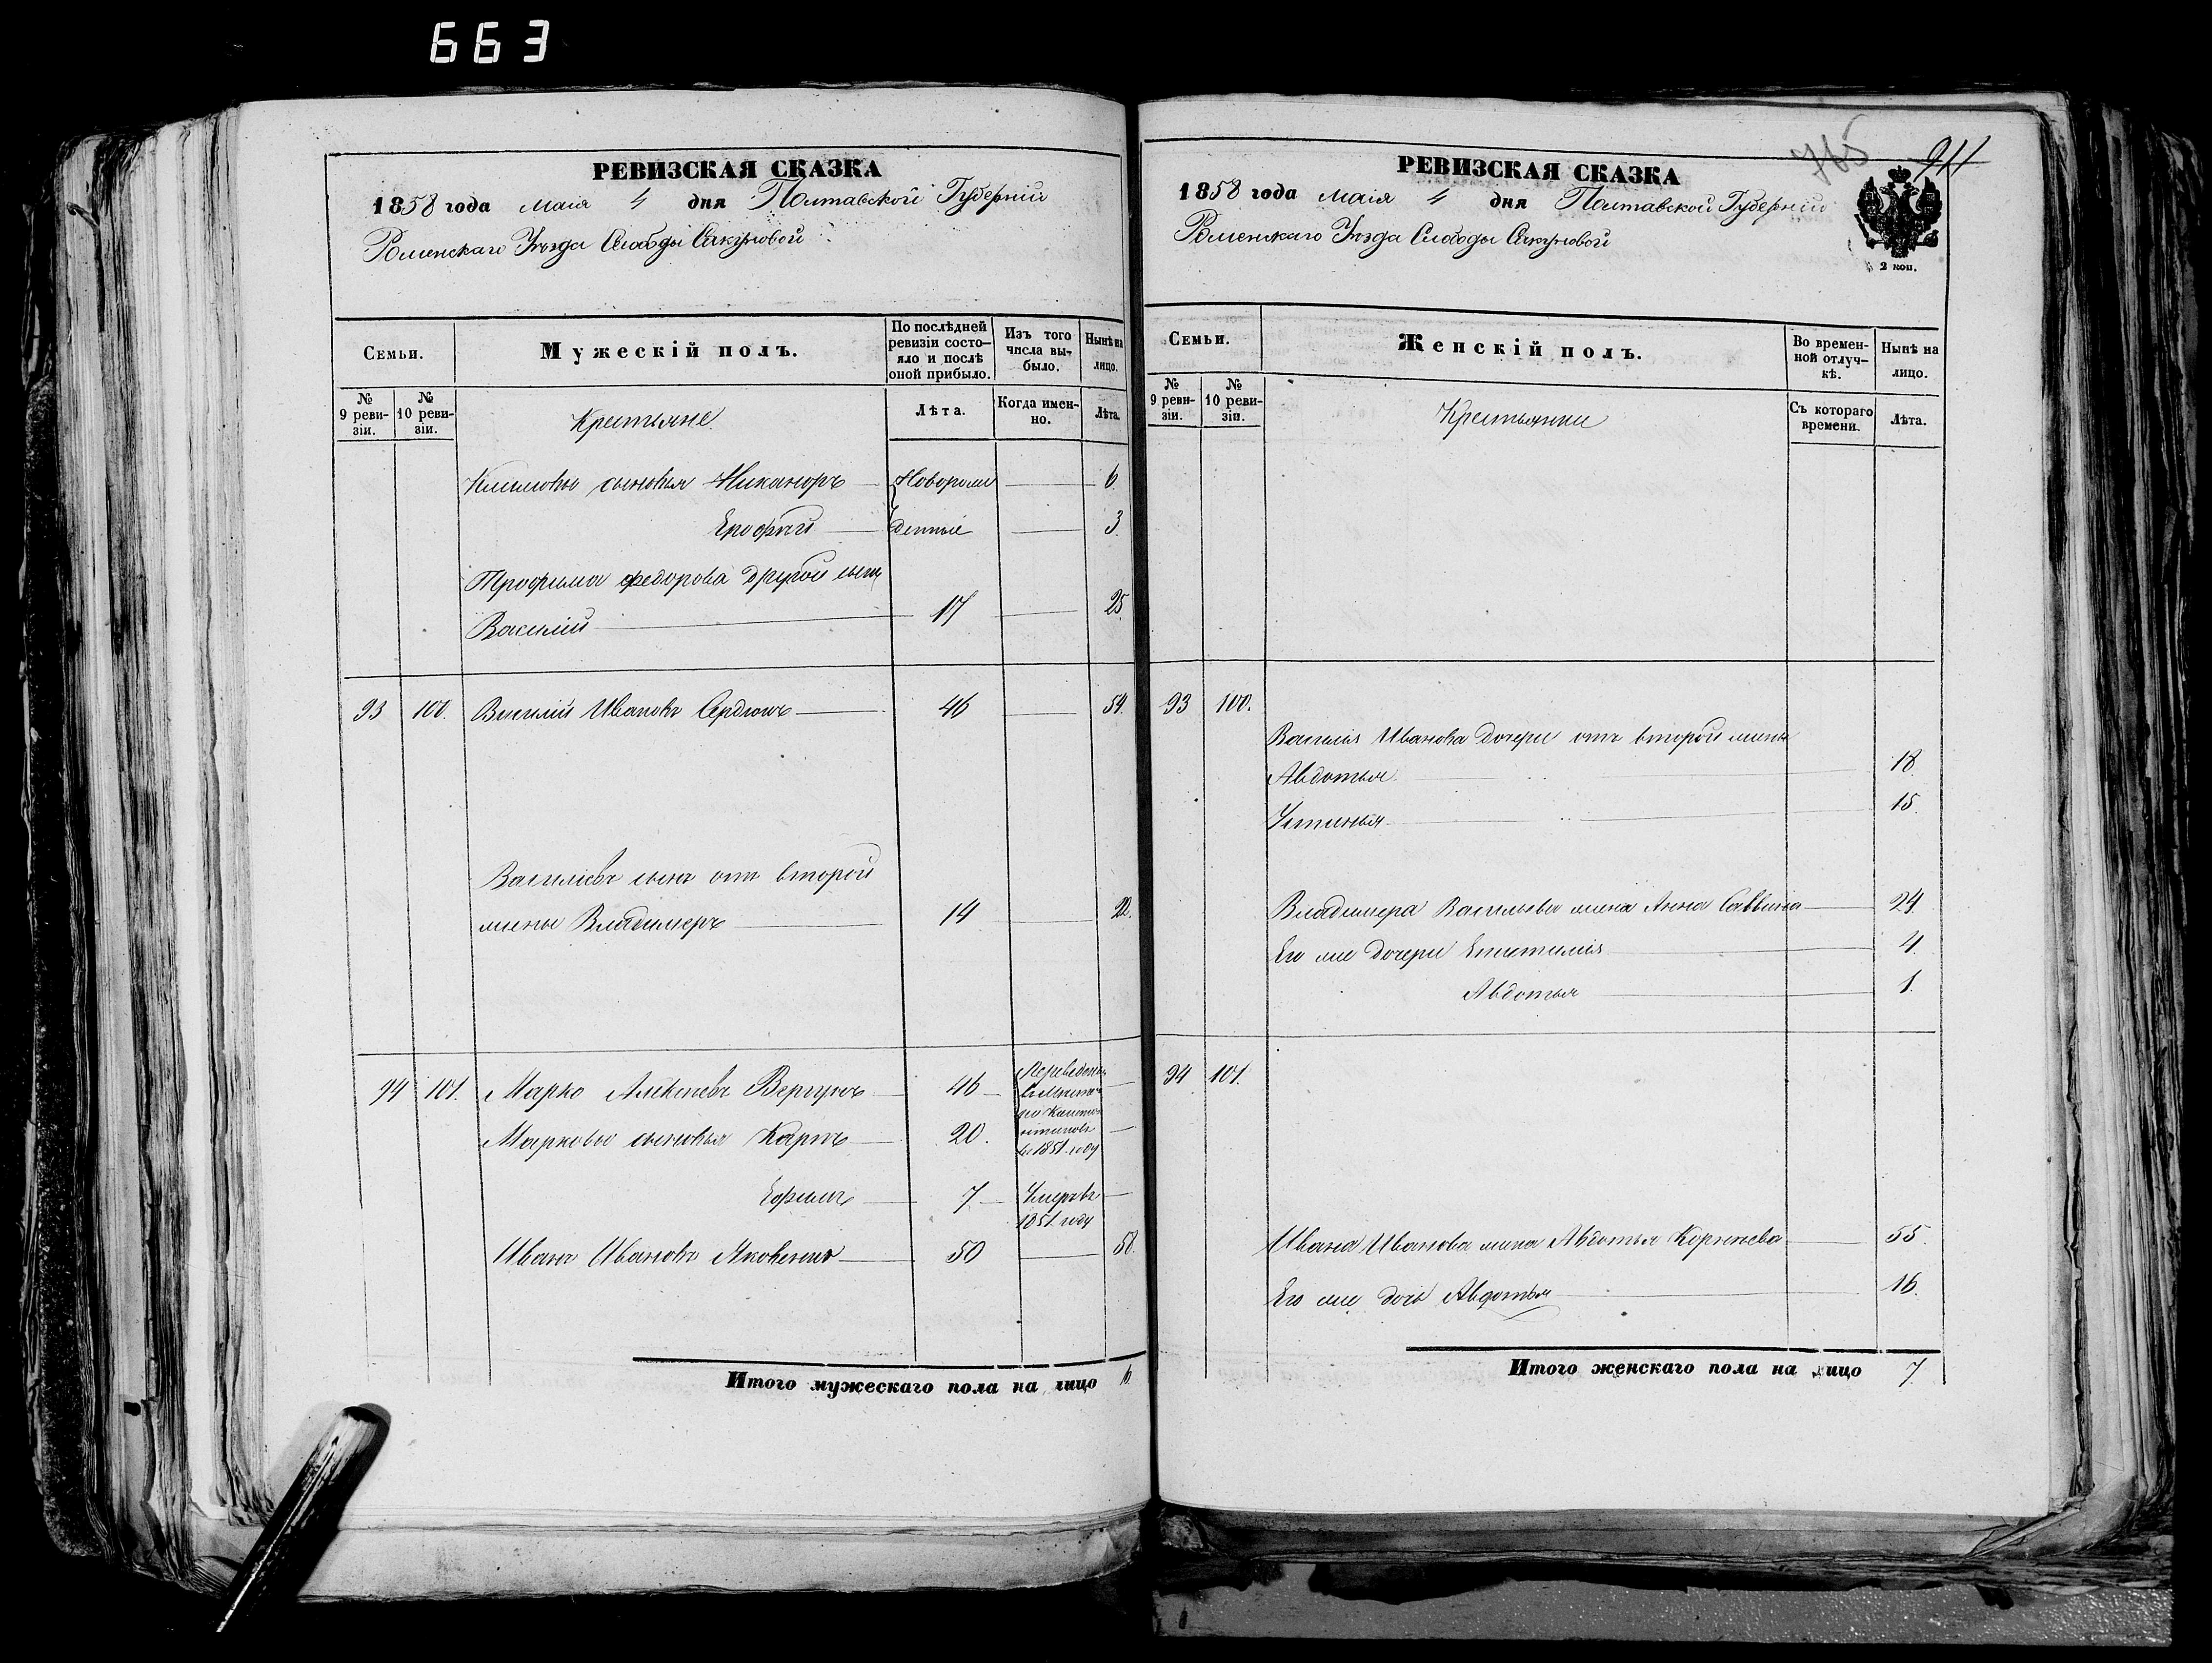 663
РЕВИЗСКАЯ СКАЗКА
1858 года маія 4 дня Полтавской Губерніи
Роменскаго Уѣзда Слободы Сакуновой
Семьи.
Мужескій полъ.
По послѣдней ревизіи состо-
яло и послѣ оной прибыло.
Изъ того числа вы-
было.
Нынѣ на лицо.
№ 9 реви-
зіи.
№ 10 реви-
зіи.
Крестьяне
Лѣта.
Когда имен-
но.
Лѣта.
Климовы сыновья Никаноръ Новорож 6
Ерофѣй денные 3
Трофима Федорова другой сынъ
Василій 17 25
93 100. Василій Ивановъ Сердюкъ 46 54.
Василіевъ сынъ отъ второй
жены Владимеръ 14 22.
94 101. Марко Алексѣевъ Вергунъ 46
Переведены
Марковы сыновья Карпъ 20.
в 1851 году
Ефимъ 7 Умеръ въ
1851 году
Иванъ Ивановъ Яковенко 50 58.
Итого мужескаго пола на лицо 6
765 911
РЕВИЗСКАЯ СКАЗКА
1858 года маія 4 дня Полтавской Губерніи
Роменскаго Уѣзда Слободы Сакуновой
2 коп.
Семьи.
Женскій полъ.
Во времен-
ной отлуч-
кѣ.
Нынѣ на лицо.
№ 9 реви-
зіи.
№ 10 реви-
зіи.
Крестьянки
Съ котораго времени.
Лѣта.
93 100.
Василія Иванова дочери отъ второй жены
Авдотья 18
Устинья 15
Владимера Васильева жена Анна Саввина 24
Его же дочери Епистимія 4
Авдотья 1
94 101.
Ивана Иванова жена Авдотья Корнѣева 55.
Его же дочь Авдотья 16.
Итого женскаго пола на лицо 7